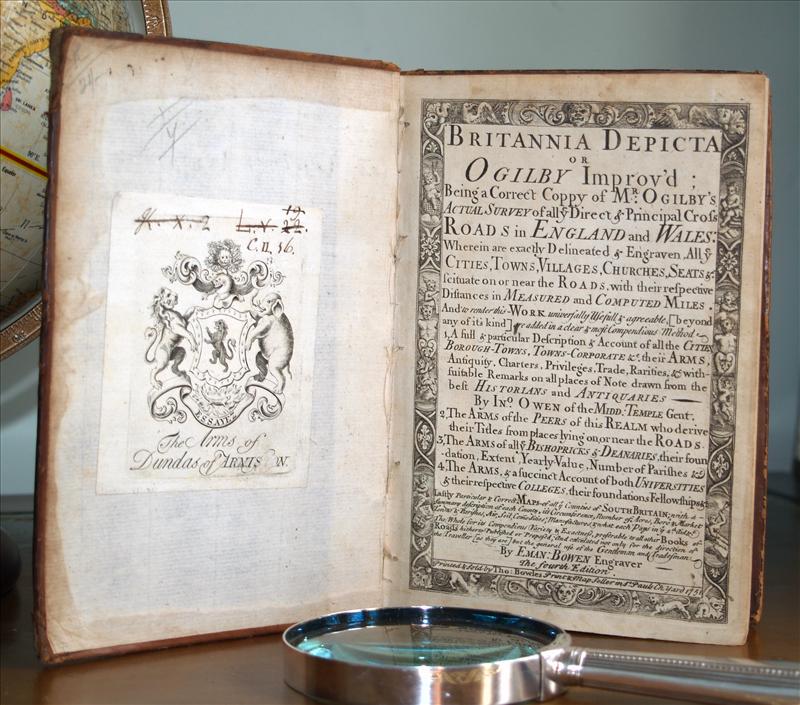 SRI LANKA
90°E
24
4
g. x. 2 L. v. 22.
19
C. 11. 36.
ESSAYEZ
The Arms of
Dundas of ARNISTON.
BRITANNIA DEPICTA
OR
OGILBY Improv'd;
Being a Correct Coppy of Mr. OGILBY's
ACTUAL SURVEY of all ye Direct & Principal Cross
ROADS in ENGLAND and WALES:
Wherein are exactly Delineated & Engraven, All ye
CITIES, TOWNS, VILLAGES, CHURCHES, SEATS &c.
scituate on or near the ROADS, with their respective
Distances in MEASURED and COMPUTED MILES.
And to render this WORK universally Usefull & agreeable, [beyond
any of its kind] are added in a clear & most Compendious Method
1, A full & particular Description & Account of all the CITIES,
BOROUGH-TOWNS, TOWNS-CORPORATE &c. their ARMS,
Antiquity, Charters, Privileges, Trade, Rarities, &c. with
suitable Remarks on all places of Note drawn from the
best HISTORIANS and ANTIQUARIES
By Ino. OWEN of the MIDD: TEMPLE Gent.
2, The ARMS of the PEERS of this REALM who derive
their Titles from places lying on, or near the ROADS.
3, The ARMS of all ye BISHOPRICKS & DEANARIES, their foun
dation, Extent, Yearly-Value, Number of Parishes &c.
4, The ARMS, & a succinct Account of both UNIVERSITIES
& their respective COLLEGES, their foundations Fellowships &c.
Lastly Particular & Correct MAPS of all ye Counties of SOUTH BRITAIN; with a
Summary description of each County, its Circumference, Number of Acres, Boro' & Market
Towns & Parishes, Air, Soil, Comodities, Manufactures, & what each Pays in ye
The Whole for its Compendious Variety & Exactness, preferable to all other Books of
Roads hitherto Published or Propos'd; And calculated not only for the direction of
the Traveller [as they are] but the general use of the Gentleman and Tradesman.
By EMAN: BOWEN Engraver
The fourth Edition
Printed & Sold by Tho: Bowles Print & Map Seller in St. Pauls Ch. Yard 1751